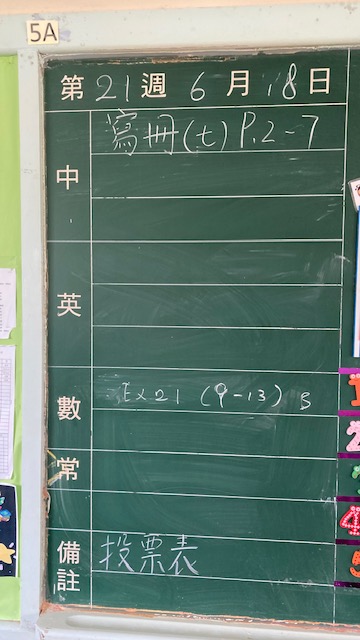 5A
第 21 週 6 月 18 日
中 寫冊(七) P.2-7
英
數 Ex21 (9-13) B
常
備註 投票表
1
2
4
5